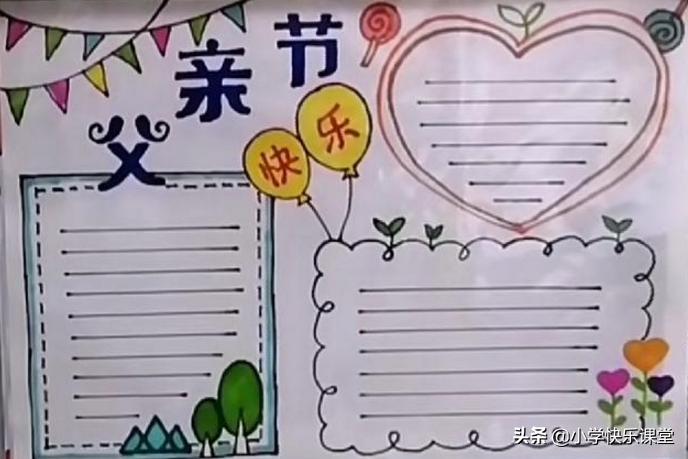 父亲节
快乐
头条 @小学快乐课堂